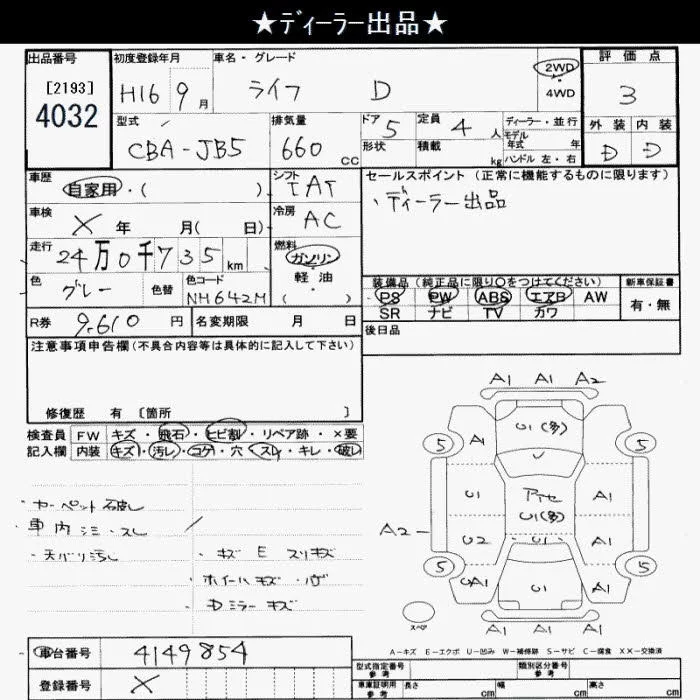 ★ディーラー出品★
出品番号 初度登録年月 車名・グレード 評価点
[2193] H16 9月 ライフ D 2WD 4WD 3
4032 型式 排気量 ドア 定員 ディーラー・並行 外装 内装
CBA-JB5 660 CC 5 4人 モデル年式 年 D D
形状 積載 kg ハンドル 左・右
車歴 自家用・( ) シフト IAT セールスポイント (正常に機能するものに限ります)
・ディーラー出品
車検 X 年 月( 日) 冷房 AC
走行 24万0千735 km 燃料 ガソリン・軽油・( )
色 グレー 色替 色コード NH642M 装備品 (純正品に限り○をつけてください) 新車保証書
PS PW ABS エアB AW 有・無
SR ナビ TV カワ
R券 9,610円 名変期限 月 日 後日品
注意事項申告欄(不具合内容等は具体的に記入して下さい)
修復歴 有 〔箇所 〕
検査員 FW キズ・飛石・ヒビ割・リペア跡・×要
記入欄 内装 キズ・汚レ・コゲ・穴・スレ・キレ・破レ
・カーペット破れ
・車内シミ・スレ
・天バリ汚れ
・キズ E スリキズ
・ホイールキズ・ハゲ
・Dミラーキズ
A1 A1 A2
5 A1 U1(多) 5
U1 アイセ A1
U1(多)
A2 U2 U1 A1
5 UA1 U1 A1 5
スペア A1 A1 A1
A-キズ E-エクボ U-凹み W-補修跡 S-サビ C-腐食 XX-交換済
車台番号 4149854 型式指定番号 参考 類別区分番号 参考
登録番号 X 車庫証明用 参考 長さ cm 幅 cm 高さ cm